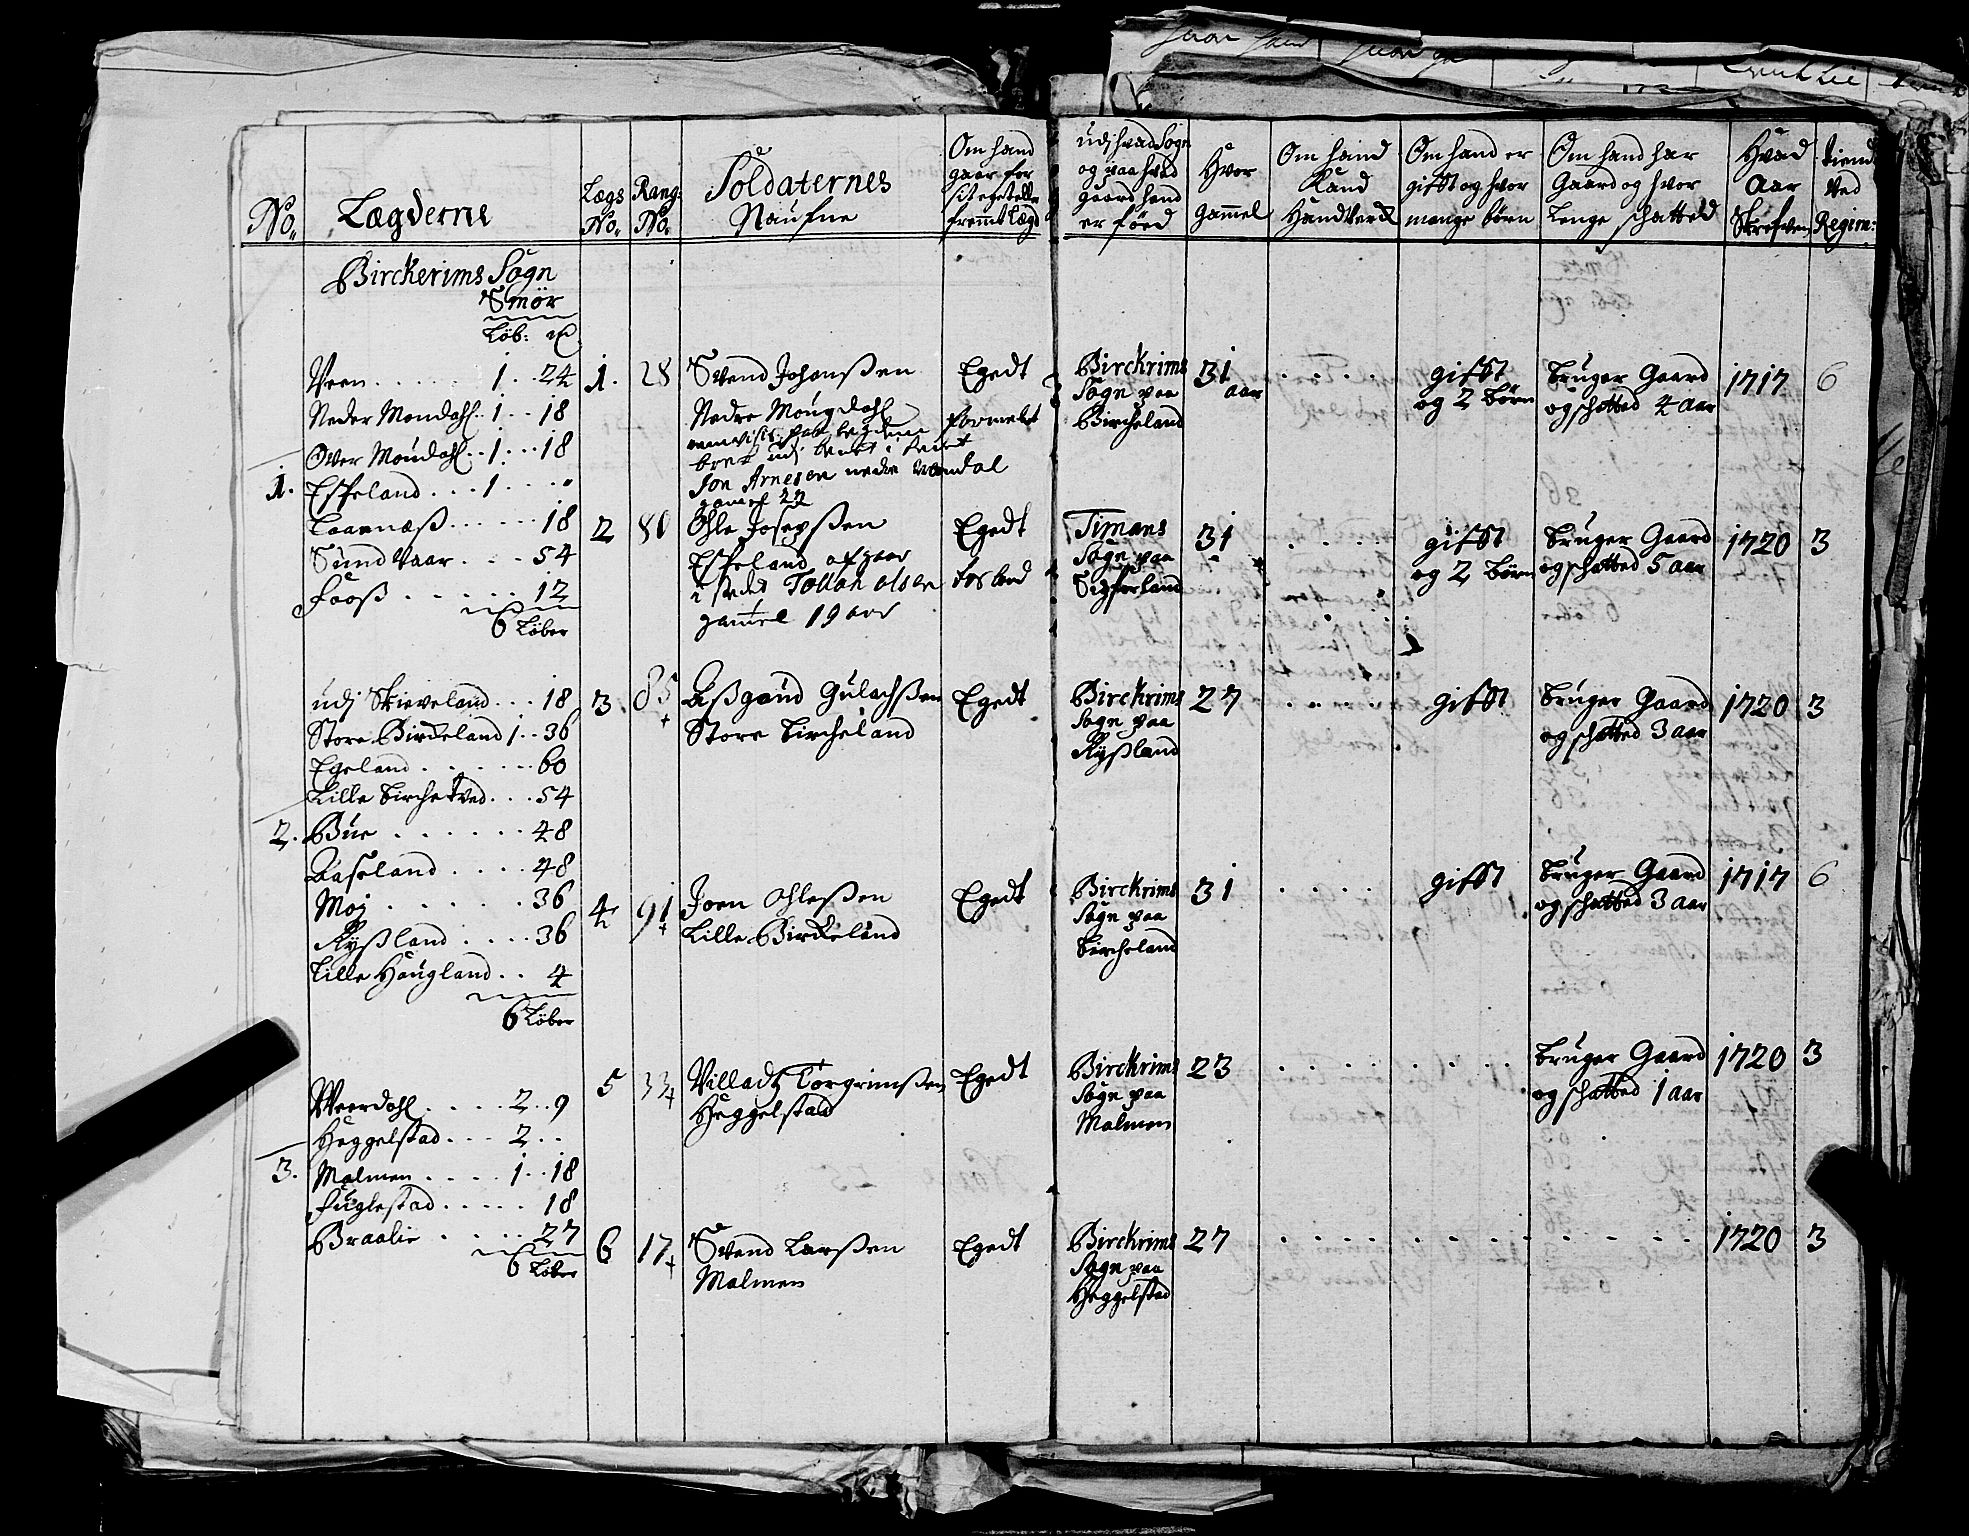 No. Lægderne Lægs No. Rang: No. Soldaternes Naufne Om hand gaar for sit eget eller fremt Læg udj hvad Sogn og paa hvad Gaard hand er föed Hvor gammel Om hand Kand Handverck Om hand er gifft og hvor mange börn Om hand har Gaard og hvor Lenge schatted Hvad Aar Skrefven tiend ved Regim:
Birckerims Sogn
Smör
Löb:
Veen 1 24
Neder Mondahl 1 18
Over Moudahl 1 18
1. Espeland 1
Laarnæß 18
Sundvaar 54
Faaß 12
6 Löber
1. 28 Svend Johanßen
Egedt
Birckrims Sogn paa Bircheland
31 aar
gifft og 2 börn
bruger Gaard og schatted 4 aar
1717 6
Nedre Mougdahl
Jon Arnesen nedre Mondal
gamel 22
2 80 Ohle Josepßen
Espeland
i stedet Tollah olsen
gammel 19 aar
Egedt
Timans Sogn paa Sigforland
31
gifft og 2 börn
bruger Gaard og schatted 5 aar
1720 3
udj Skieveland 18
Store Birckeland 1 36
Egeland 60
Lille birchetved 54
2. Büe 48
Aaseland 48
Moj 36
Kyßland 36
Lille Haugland 4
6 Löber
3. 85 Aßgaud Gulachßen
Store bircheland
Egedt
Birckrims Sogn paa Kyßland
27
gifft
bruger Gaard og schatted 3 aar
1720 3
4 91 Joen Ohleßen
Lille Birckeland
Egedt
Birckrims Sogn paa bircheland
31
gifft
bruger Gaard og schatted 3 aar
1717 6
Veerdahl 2 9
Heggelstad 2
3. Malmen 1 18
Fuglestad 18
Braalie 27
6 Löber
5 33 Villadz Torgrimßen
Heggelstad
Egedt
Birckrims Sogn paa Malmen
23
bruger Gaard og schatted 1 aar
1720 3
6 17 Svend Larßen
Malmen
Egedt
Birckrims Sogn paa Heggelstad
27
1720 3